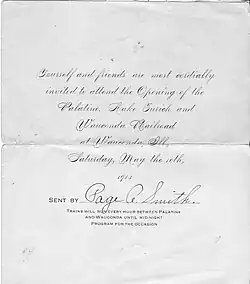 Yourself and friends are most cordially
invited to attend the Opening of the
Palatine, Lake Zurich and
Wauconda Railroad
at Wauconda, Ill,
Saturday, May the 10th,
1912
SENT BY Page A. Smith
TRAINS WILL RUN EVERY HOUR BETWEEN PALATINE
AND WAUCONDA UNTIL MIDNIGHT
PROGRAM FOR THE OCCASION